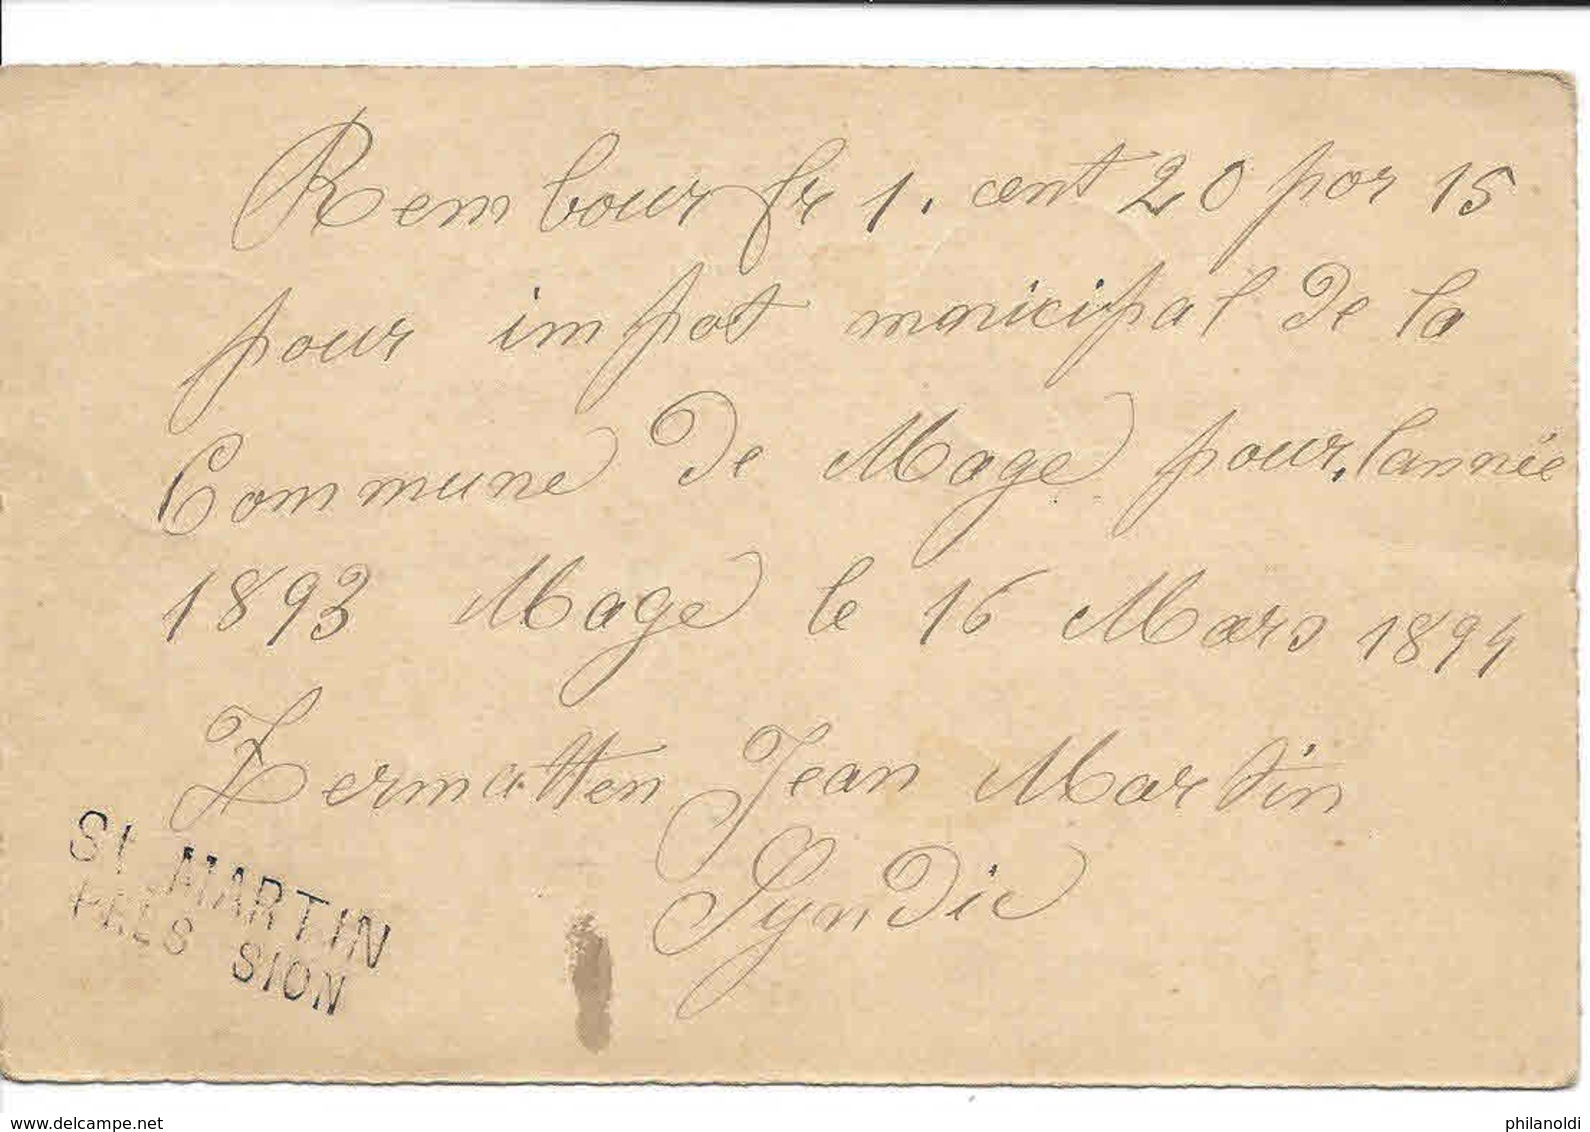 Rembour fr 1. cent 20 por 15
pour impot municipal de la
Commune de Mage pour lannée
1893 Mage le 16 Mars 1894
Zermatten Jean Martin
Syndic
St MARTIN
PRES SION
www.delcampe.net
philanoldi